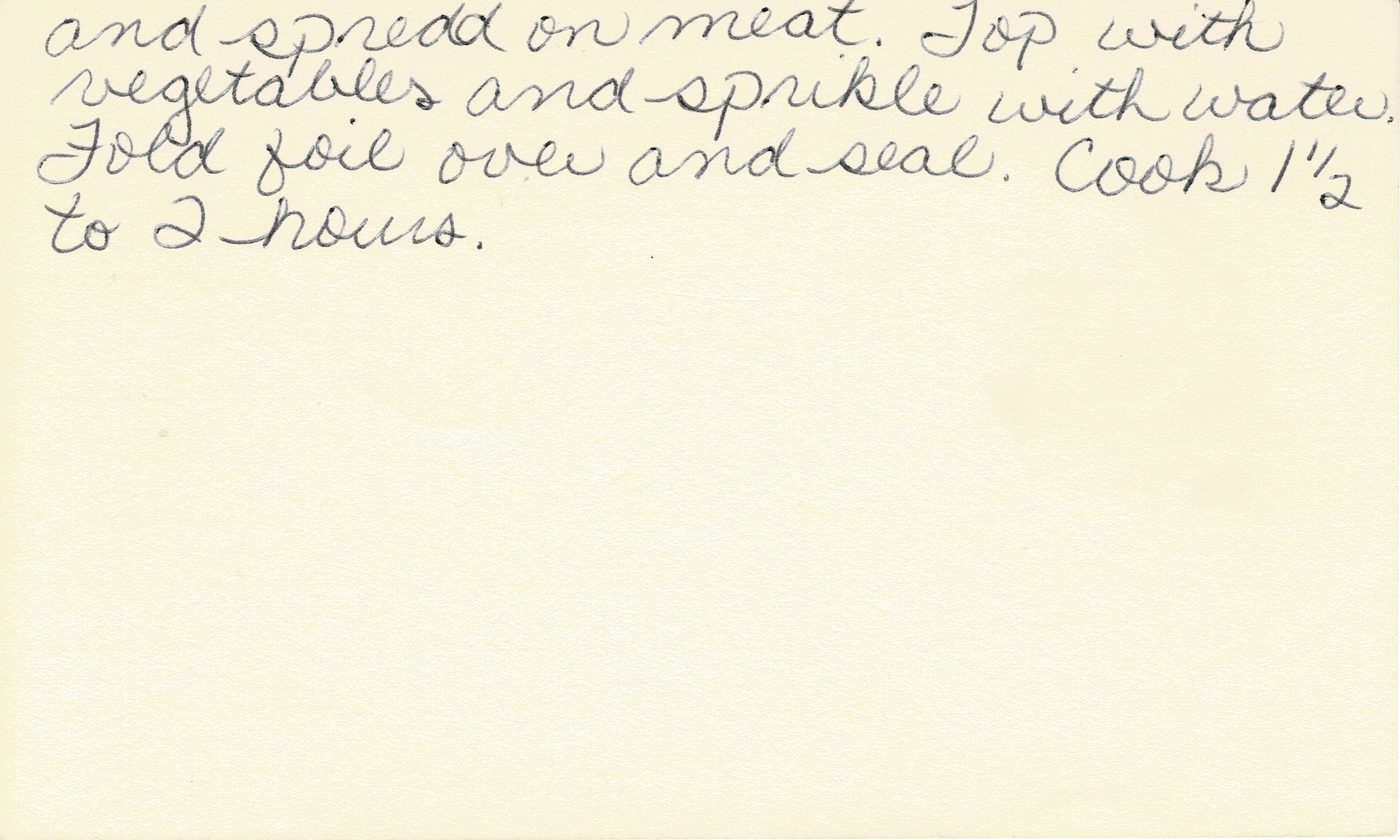 and spredd on meat. Top with
vegetables and sprikle with water.
Fold foil over and seal. Cook 1 1/2
to 2 hours.